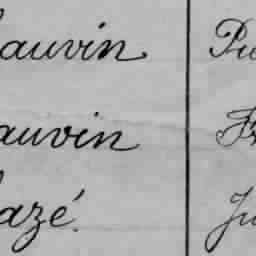 auvin Pi
auvin Fr
azé. Ju